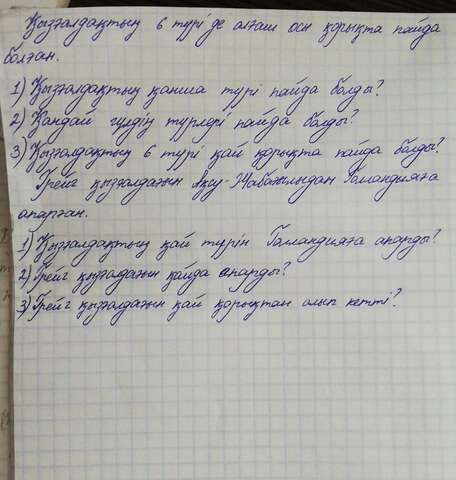 Қызғалдақтың 6 түрі де алғаш осы қорықта пайда
болған.
1) Қызғалдақтың қанша түрі пайда болды?
2) Қандай гүлдің түрлері пайда болды?
3) Қызғалдақтың 6 түрі қай қорықта пайда болды?
Грейг қызғалдағын Ақсу-Жабағылыдан Голландияға
апарған.
1) Қызғалдақтың қай түрін Голландияға апарды?
2) Грейг қызғалдағын қайда апарды?
3) Грейг қызғалдағын қай қорықтан алып кетті?